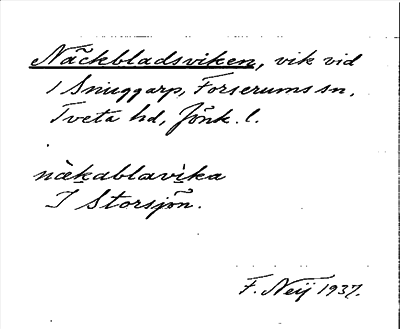 Näckbladsviken, vik vid
1 Snuggarp, Forserums sn,
Tveta hd, Jönk. l.
näkablavika
I Storsjön.
F. Neij 1937.